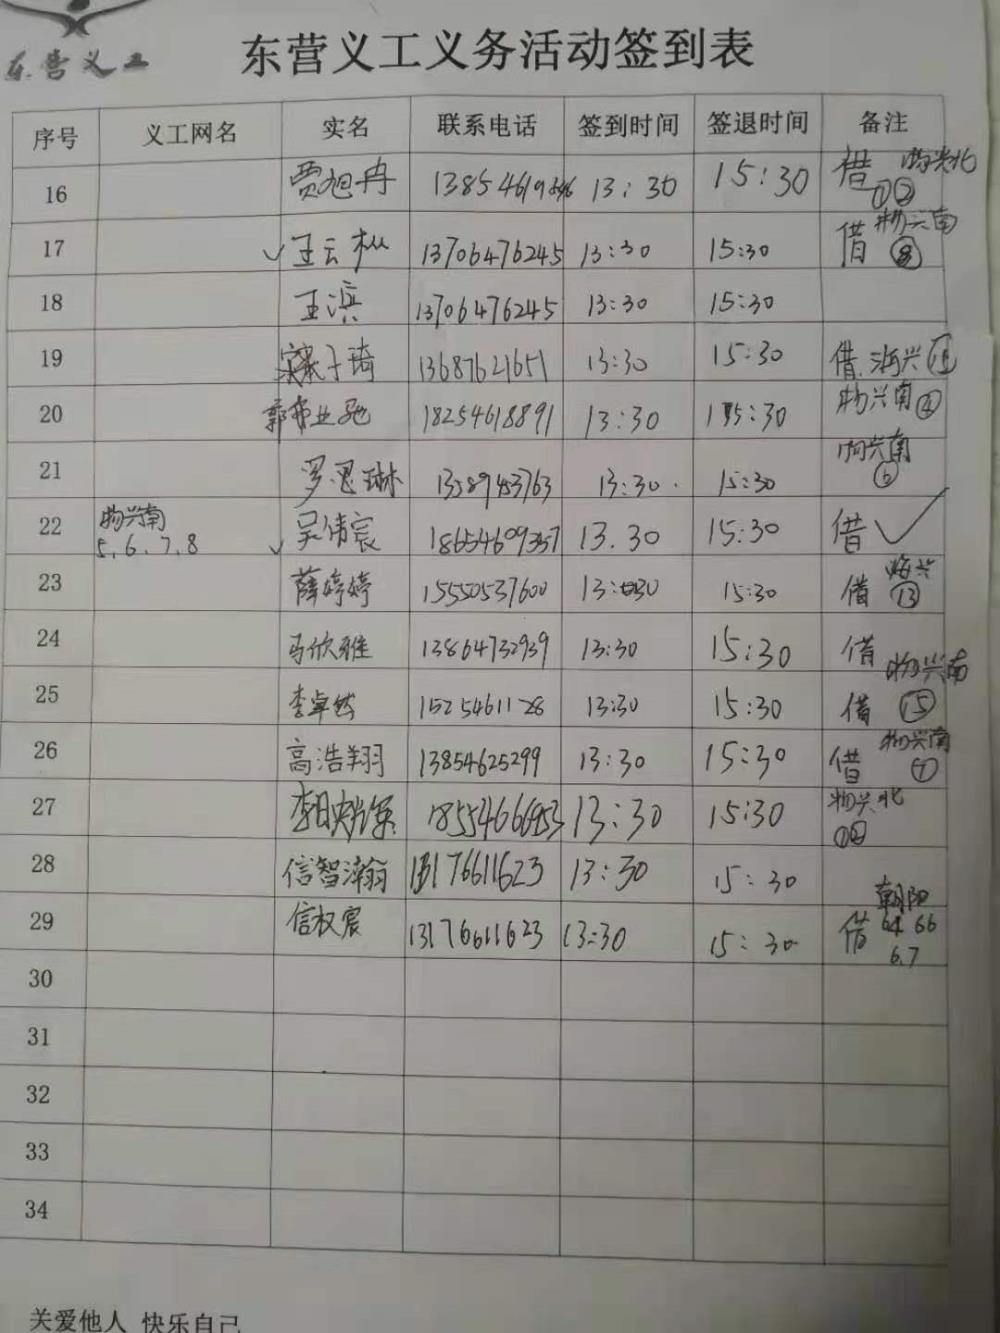 东营义工
东营义工义务活动签到表
序号 义工网名 实名 联系电话 签到时间 签退时间 备注
16 贾旭冉 13:30 15:30 借 物兴北 ①②
17 王云枞 13706476245 13:30 15:30 借 物兴南 ⑧
18 王滨 13706476245 13:30 15:30
19 子琦 13687621651 13:30 15:30 借
20 郭 18254618891 13:30 15:30 物兴南 ④
21 罗思琳 13:30 15:30 物兴南 ⑥
22 物兴南 5、6、7、8 吴伟宸 18654609357 13.30 15:30 借
23 薛婷婷 15550537600 13:30 15:30 借 ⑬
24 马欣雅 13864732939 13:30 15:30 借
25 李卓然 13:30 15:30 借 物兴南 ⑮
26 高浩翔 13854625299 13:30 15:30 借 物兴南
27 13:30 15:30 物兴北 ①②
28 信智瀚 13176611623 13:30 15:30
29 信权宸 13176611623 13:30 15:30 借 朝阳 64 66 6.7
30
31
32
33
34
关爱他人 快乐自己